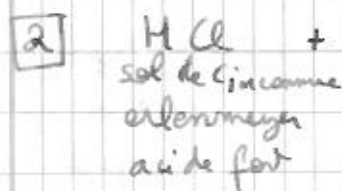 2 H Cl +
sol de C inconnue
erlenmeyer
acide fort